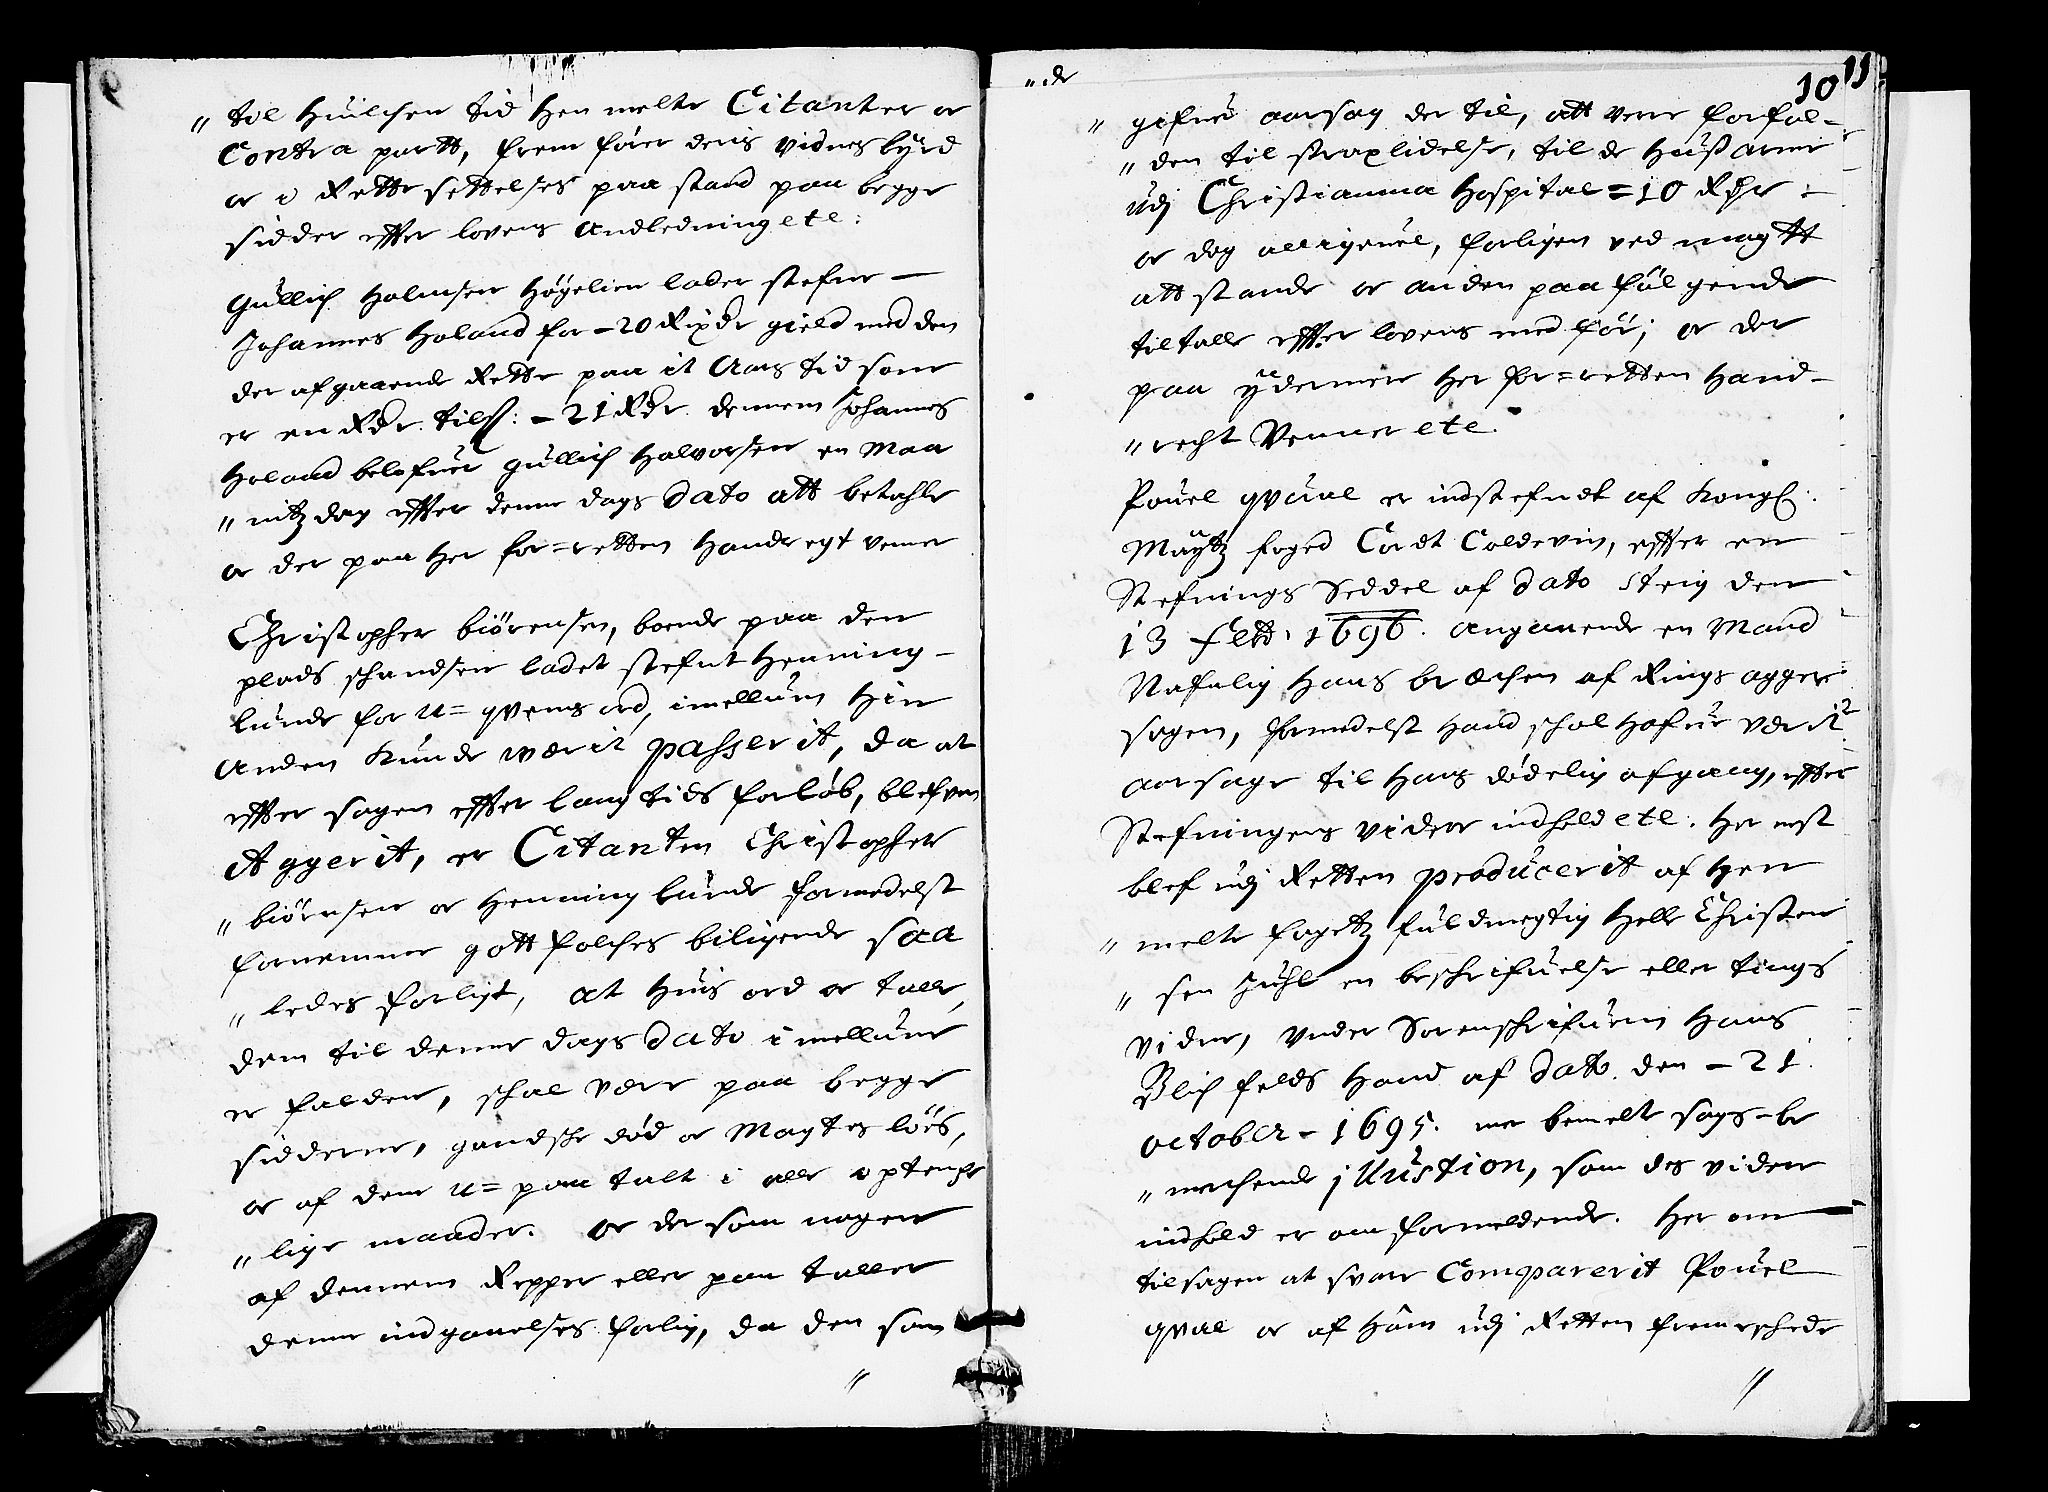 " til huilchen tid hen melte Citanter oc
Contra partt, frem fører deris vidnesbyrd
oc i Rette settelses paastand paa begge
sidder effter lovens Andledning etc:
Gullich Halvorsen Høyelien lader stefne —
Johannes Holand for – 20 Rixdr gield med den
der afgaaende Rette paa it Aars tid som
er en Rdr. tils: – 21 Rdr. dennem Johannes
Holand belofuer Gullich Halvorsen en Maa
" nitz dag effter denne dags dato att betahle
oc der paa her for=retten handregt vener
Christopher biørensen, boende paa den
plads schandsen ladet stefnt Henning –
lunde for u=qvems ord, imellum hin
anden kunde værit passerit, da at
effter sagen effter lang tids forløb, blefven
Aggerit, er Citanten Christopher
" biørnsen oc Henning lunde formedelst
fornemme gott folches biligende saa
" ledes forligt, at huis ord oc talle,
dem til denne dags dato imellum
er falden, schal være paa begge
sidderne, gandsche død oc Magtes løes,
oc af dem u=paa talt i alle optenche
" lige maader. oc der som nogen
af dennem Repper eller paa taller
denne indgaaelses forlig, da den som
"
" de
10 11
" gifued aarsag der til, att vere forfal–
" den til straxlidelse, til de huusarme
udj Christiania Hospital = 10 Rdr :
oc dog alligeuel, forligen ved magtt
att stande oc anden paafølgende
tiltalle effter lovens medfør; oc der
paa ydermere her for=retten hand–
" recht venner etc.
Pouel qvaal er indstefndt af kongl:
Maytz foged Cordt Coldevin, effter en
Stefnings Seddel af dato Steig den
13 febr: 1696. angaaende en Mand
Nafnlig Hans bræchen af Ringsagger
sogen, formedelst hand schal hafue værit
aarsage til hans dødelig afgang, effter
Stefningens videre indhold etc. Her nest
blef udj Retten producerit af hen
" melte fogetz fuldmegtig Helle Christen
" sen Juhl en beschrifuelse eller tings
vidne, under Sorenschrifueren Hans
Blichfelds Hand af dato den – 21.
october – 1695. mer bemelte sags – be
" merchende j Uustion, som des videre
indhold er om formeldende. Her om —
til sagen at svare Comparerit Pouel
qvaal oc af ham udj Retten fremeschede
"